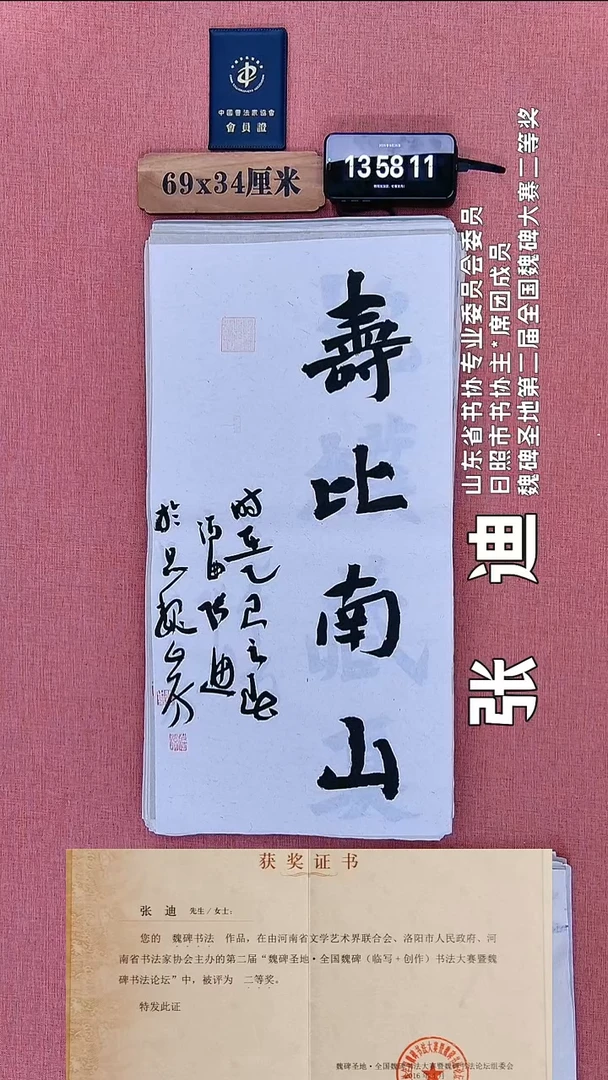 中國書法家協會
會員證
69x34厘米
13 58 11
山东省书协专业委员会委员
日照市书协主*席团成员
魏碑圣地第二届全国魏碑大赛二等奖
张 迪
壽比南山
时在乙巳之秋
张迪
获奖证书
张 迪 先生/女士:
您的 魏碑书法 作品，在由河南省文学艺术界联合会、洛阳市人民政府、河
南省书法家协会主办的第二届“魏碑圣地·全国魏碑（临写+创作）书法大赛暨魏
碑书法论坛”中，被评为 二等奖。
特发此证
魏碑圣地·全国魏碑书法大赛暨魏碑书法论坛组委会